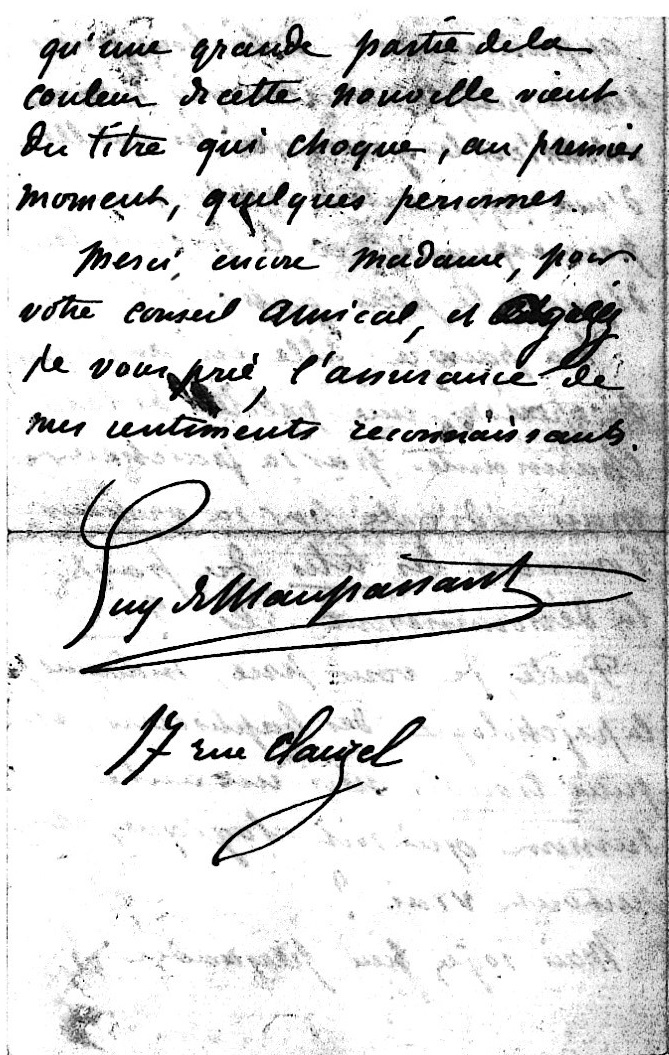 qu'une grande partie de la
couleur de cette nouvelle vient
du titre qui choque, au premier
moment, quelques personnes.
Merci, encore madame, pour
votre conseil amical, et
je vous prie, l'assurance de
mes sentiments reconnaissants.
Guy de Maupassant
17 rue Clauzel